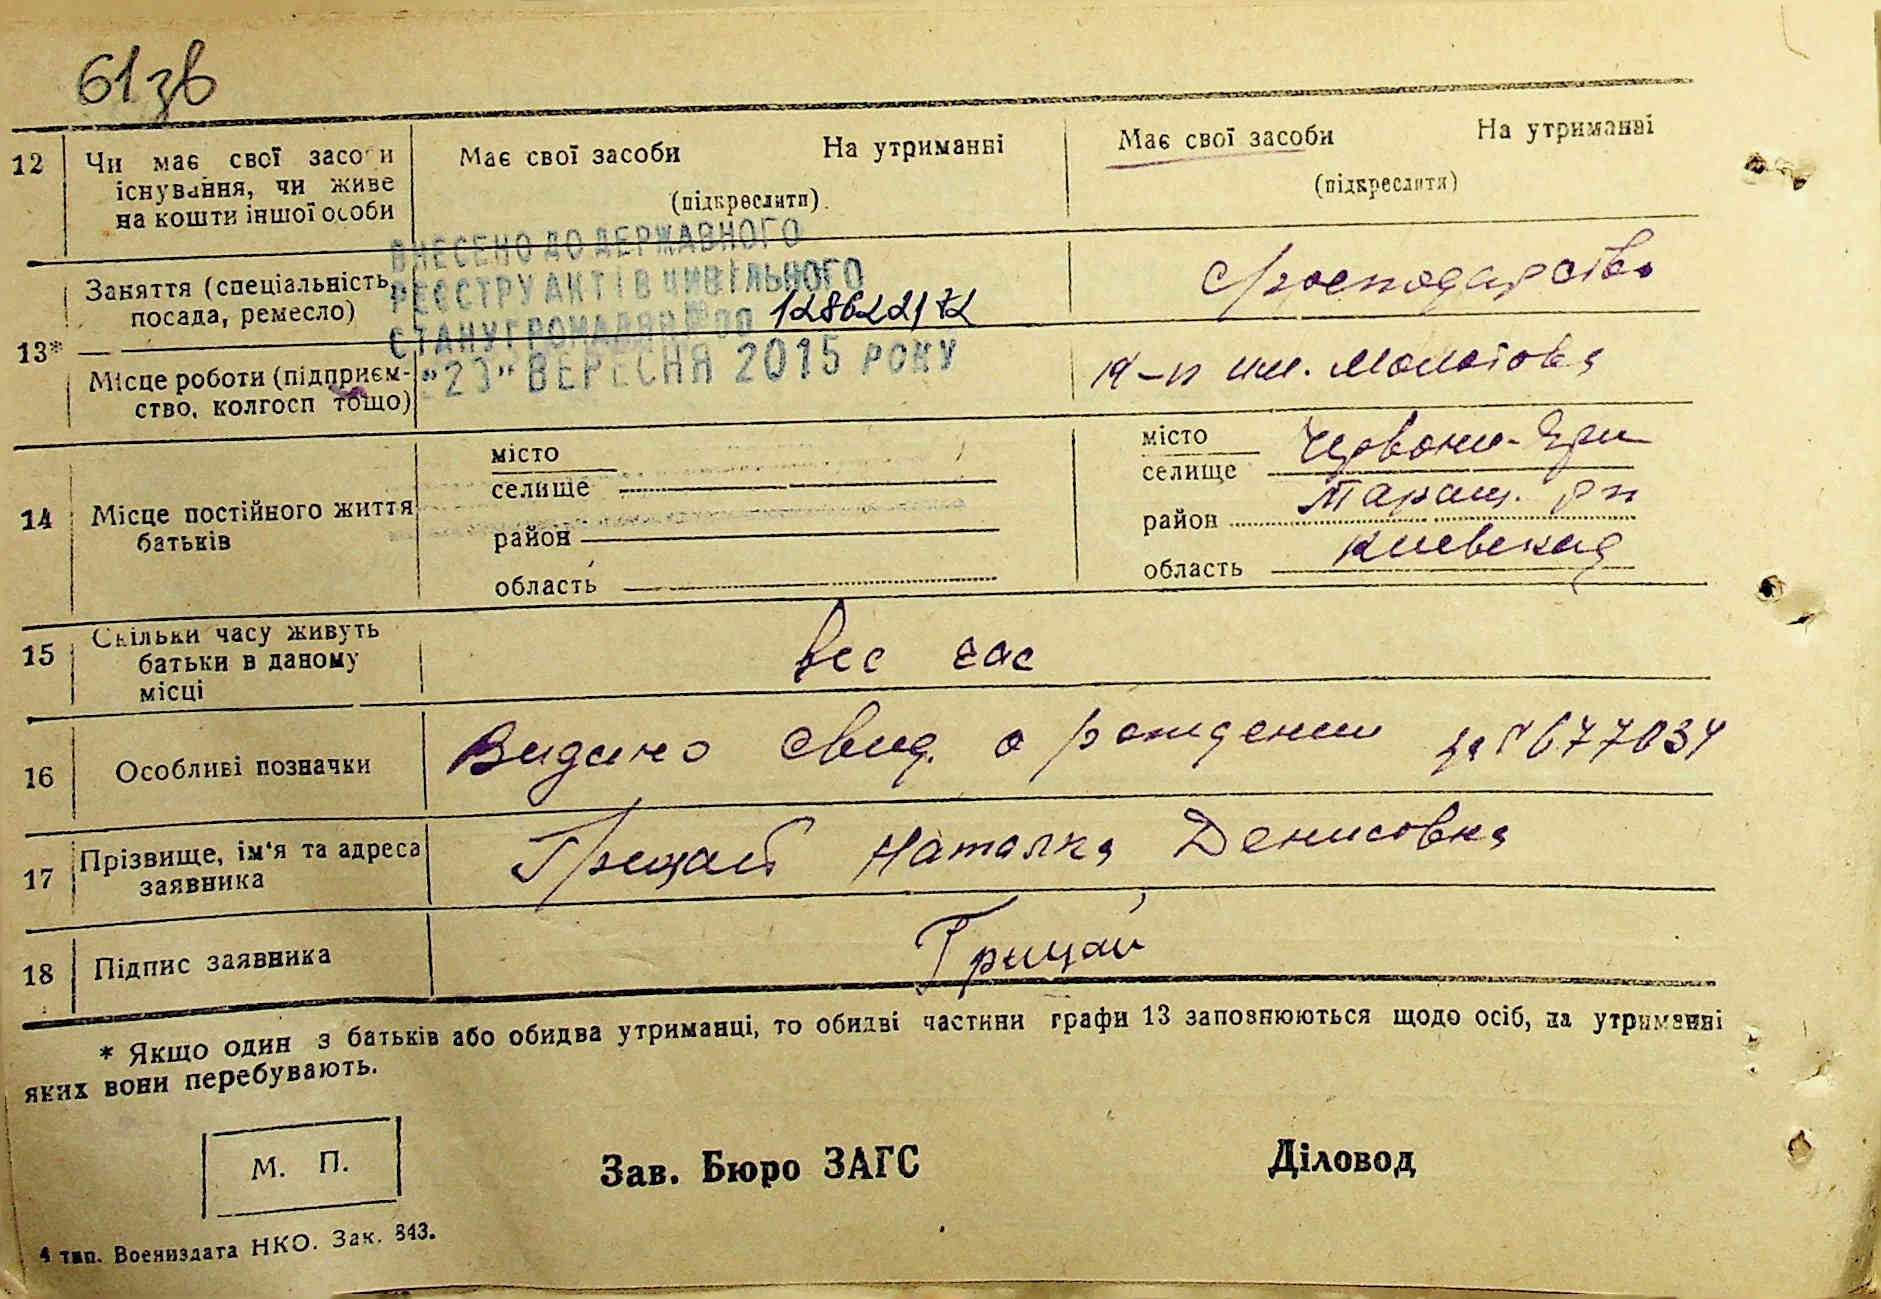 61 зв
12 Чи має свої засоби Має свої засоби На утриманні Має свої засоби На утриманні
існування, чи живе (підкреслити). (підкреслити)
на кошти іншої особи
ВНЕСЕНО ДО ДЕРЖАВНОГО
РЕЄСТРУ АКТІВ ЦИВІЛЬНОГО
СТАНУ ГРОМАДЯН 128622172
"23" ВЕРЕСНЯ 2015 РОКУ
13* Заняття (спеціальність,
посада, ремесло)
Місце роботи (підприєм- к-п им. Молотова
ство, колгосп тощо)
14 Місце постійного життя
батьків
місто
селище
район
область
місто Червони-Яри
селище
район Таращ. р-н
область Киевская
15 Скільки часу живуть
батьки в даному вес час
місці
16 Особливі позначки Видано свид. о рождении 677034
17 Прізвище, ім'я та адреса Грицай Наталка Денисовна
заявника
18 Підпис заявника Грицай
* Якщо один з батьків або обидва утриманці, то обидві частини графи 13 заповнюються щодо осіб, на утриманні
яких вони перебувають.
М. П.
Зав. Бюро ЗАГС Діловод
4 тип. Воениздата НКО. Зак. 843.